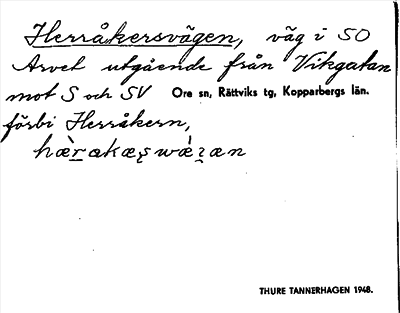 Herråkersvägen, väg i SO
Arvet utgående från Vikgatan
mot S och SV Ore sn, Rättviks tg, Kopparbergs län.
förbi Herråkern,
THURE TANNERHAGEN 1948.